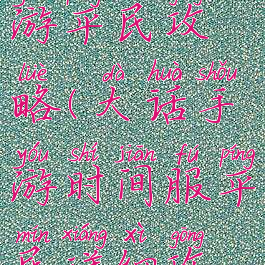 游平民攻
lüè dà huà shǒu
略(大话手
yóu shí jiān fú píng
游时间服平
mín xiáng xì gōng
民详细攻